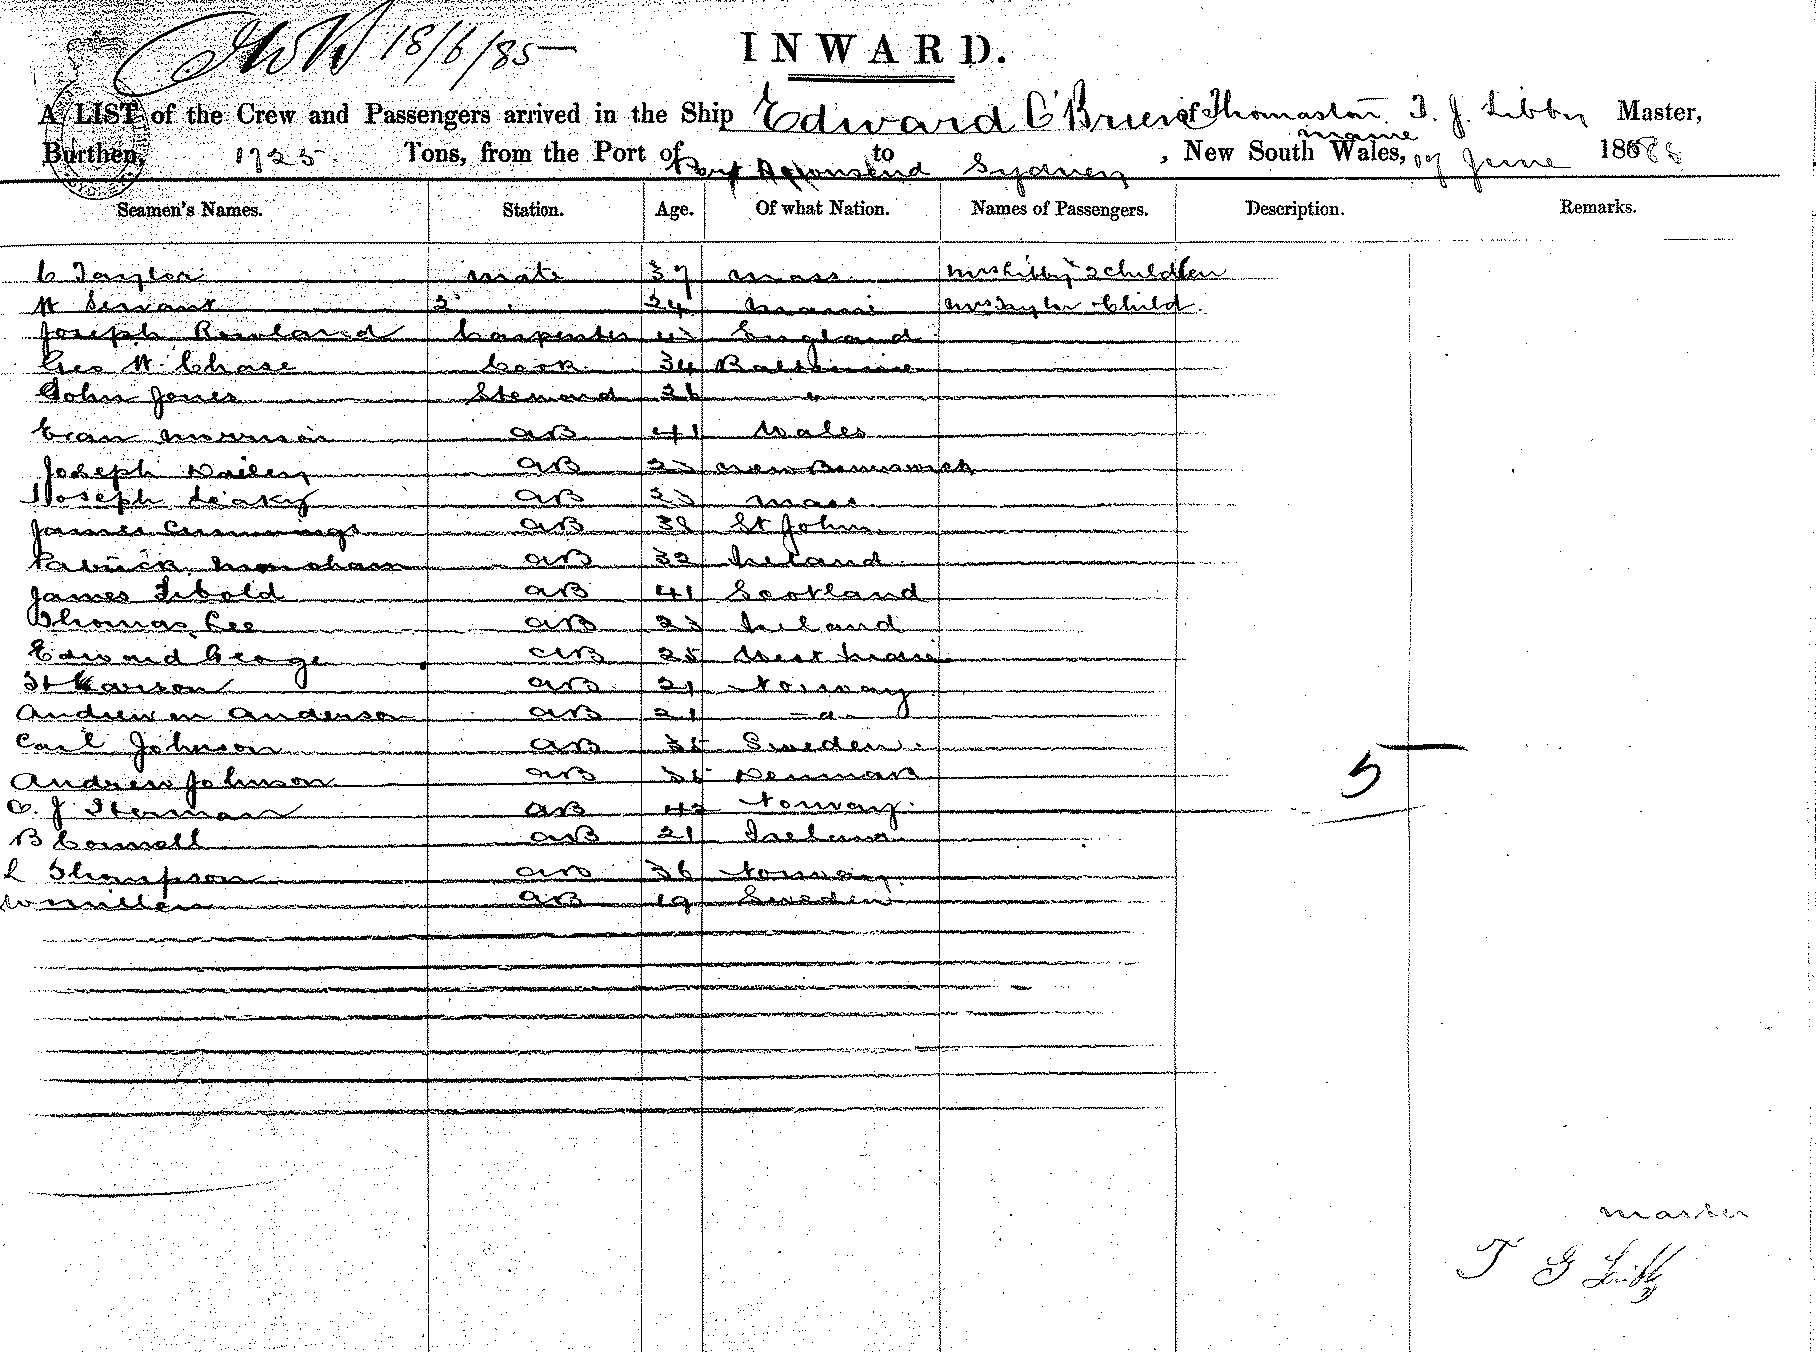 18/6/85
INWARD.
A LIST of the Crew and Passengers arrived in the Ship Edward O'Brien of Thomaston T. J. Libby Master,
Maine
Burthen, 1725 Tons, from the Port of Port Townsend to Sydney, New South Wales, 17 June 188
Seamen's Names. Station. Age. Of what Nation. Names of Passengers. Description. Remarks.
C Taylor mate 37 mass Mrs Libby 2 children
H Servant 2 24 Maine Mrs Taylor Child
Joseph Rowland Carpenter England
Geo H Chase Cook 34 Baltimore
John Jones Steward 26 "
Evan Morrison AB 41 Wales
Joseph Dailey AB 23 New Brunswick
Joseph Leaky AB 23 mass
James Cummings AB 38 St John
Patrick AB 32 Ireland
James Sibold AB 41 Scotland
Thomas Lee AB 23 Ireland
Edward George AB 25 West India
AB 21 Norway
Andrew M Anderson AB 21 - " -
Carl Johnson AB 35 Sweden
Andrew Johnson AB 35 Denmark
O. J AB 42 Norway
B Connell AB 21 Ireland
L Thompson AB 36 Norway
W Miller AB 19 Sweden
5
master
T G Libby